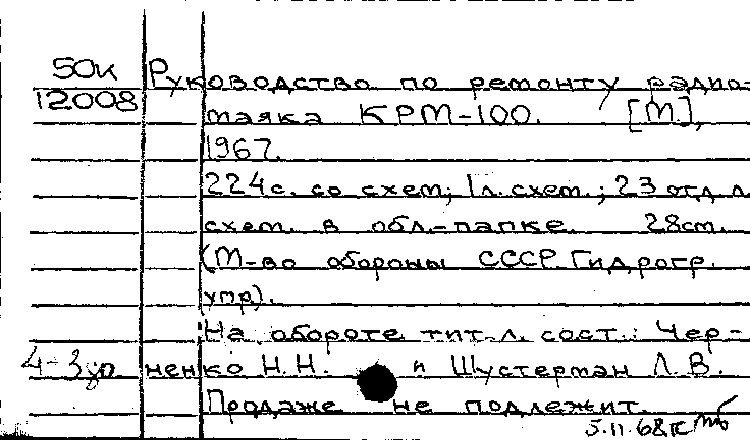 50к
12008
Руководство по ремонту радио-
маяка КРМ-100. [М],
1967.
224с. со схем; 1л. схем.; 23 отд. л.
схем. в обл.-папке. 28см.
(М-во обороны СССР. Гидрогр.
упр).
На обороте тит. л. сост.: Чер-
ненко Н. Н. и Шустерман Л. В.
Продаже не подлежит.
5.11.68г